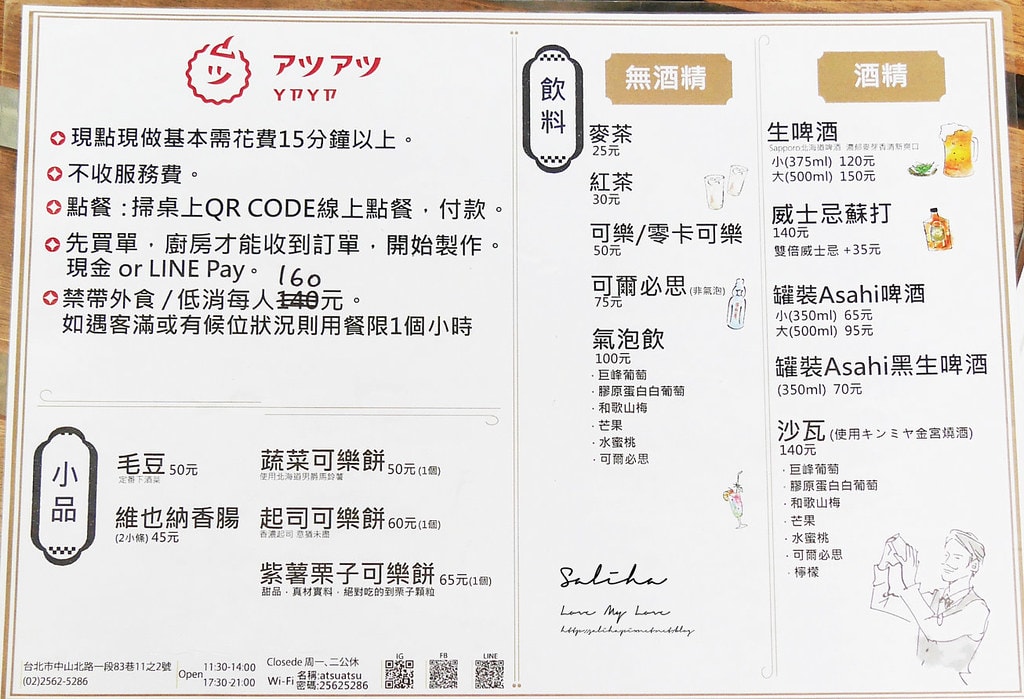 アツアツ
ツ
YアYア
現點現做基本需花費15分鐘以上。
不收服務費。
點餐：掃桌上QR CODE線上點餐，付款。
先買單，廚房才能收到訂單，開始製作。
現金 or LINE Pay。
160
禁帶外食 / 低消每人140元。
如遇客滿或有候位狀況則用餐限1個小時
小品
毛豆 50元
定番下酒菜
維也納香腸
(2小條) 45元
蔬菜可樂餅 50元 (1個)
使用北海道男爵馬鈴薯
起司可樂餅 60元 (1個)
香濃起司 意猶未盡
紫薯栗子可樂餅 65元 (1個)
甜品，真材實料，絕對吃的到栗子顆粒
台北市中山北路一段83巷11之2號
(02)2562-5286
Open 11:30-14:00
17:30-21:00
Closede 周一、二公休
Wi-Fi 名稱:atsuatsu
密碼:25625286
IG
FB
LINE
飲料
無酒精
麥茶
25元
紅茶
30元
可樂/零卡可樂
50元
可爾必思 (非氣泡)
75元
氣泡飲
100元
· 巨峰葡萄
· 膠原蛋白白葡萄
· 和歌山梅
· 芒果
· 水蜜桃
· 可爾必思
Saliha
Love My Love
http://saliha.pixnet.net/blog
酒精
生啤酒
Sapporo北海道啤酒 濃郁麥芽香清新爽口
小(375ml) 120元
大(500ml) 150元
威士忌蘇打
140元
雙倍威士忌 +35元
罐裝Asahi啤酒
小(350ml) 65元
大(500ml) 95元
罐裝Asahi黑生啤酒
(350ml) 70元
沙瓦 (使用キンミヤ金宮燒酒)
140元
· 巨峰葡萄
· 膠原蛋白白葡萄
· 和歌山梅
· 芒果
· 水蜜桃
· 可爾必思
· 檸檬